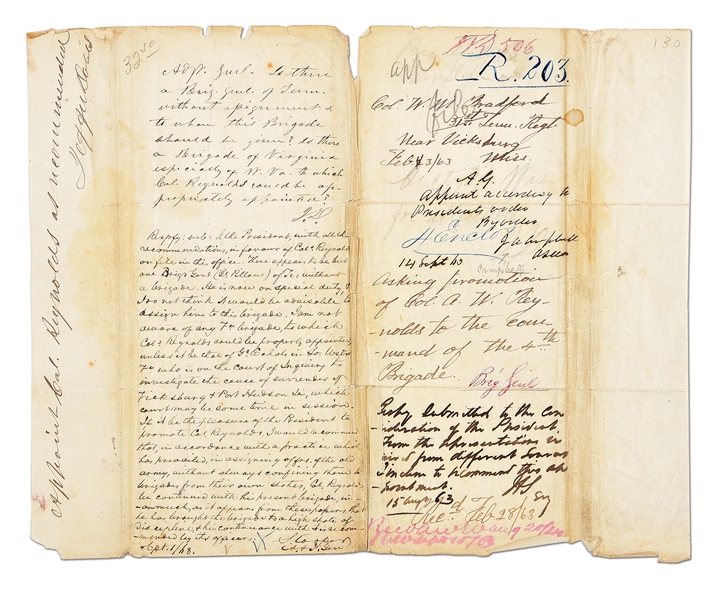 Appoint Col. Reynolds as recommended
Jeffn Davis
32 50
Adjt. Genl. Is there
a Brig. Genl. of Tenn.
without assignment &
to whom this Brigade
should be given? Is there
a Brigade of Virginia
especially of W. Va. to which
Col. Reynolds could be ap-
propriately appointed?
J.D.
Respfy. sub: to the President, with all the
recommendations, in favour of Col. Reynolds
on file in the office. There appears to be but
one Brigr Genl. (G. Pillow) of Te; without
a brigade. He is now on special duty.
I do not think it would be advisable to
assign him to this brigade. I am not
aware of any Va brigade, to which
Col. Reynolds could be properly appointed,
unless it be that of Gl. Echols in So. Westn
Va who is on the Court of Inquiry to
investigate the cause of surrender of
Vicksburg & Port Hudson La, which
court may be some time in session.
If it be the pleasure of the President to
promote Col Reynolds, I would recommend
that, in accordance with a practice which
has prevailed, in assigning offrs. of the old
army, without always confining them to
brigades from their own states, Col. Reynolds
be continued with his present brigade, in-
as it appears from these papers, that
he has brought the brigade to a high state of
discipline, & his continuance with it is recom-
mended by its officers.
S. Cooper
Sept. 1/63. A. & I. Gen
506
app R. 203.
Col. W. M. Bradford
31st Tenn. Regt
Near Vicksburg
Feb 3/63 Miss.
A.G.
Appoint according to
Presidents order
By order
J A Campbell
14 Sept 63
Campbell
Asking promotion
of Col. A. W. Rey-
-nolds to the com-
-mand of the 4th
Brigade. Brig Genl
Respy Submitted to the Con
-sideration of the President.
From the representations re
from different sources
I incline to recommend this ap
-pointment. JAS
15 Augt 63 Sey
Rec'd Feb 28/63
130